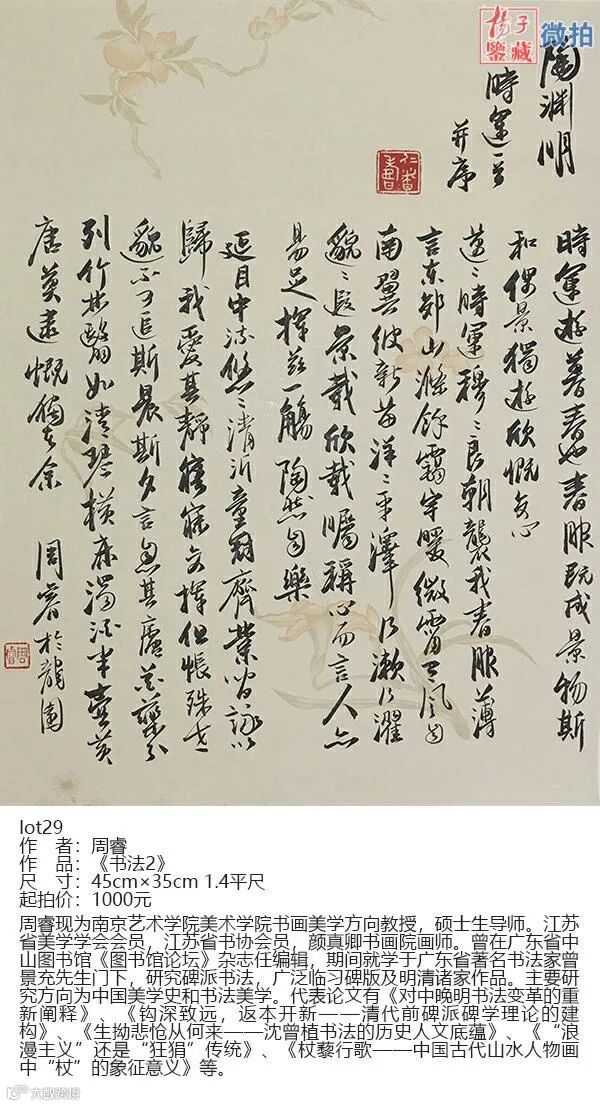 揚子鑒藏 微拍
陶渊明
時運一首
并序
時運遊暮春也春服既成景物斯
和偶景獨遊欣慨交心
邁〻時運穆〻良朝襲我春服薄
言東郊山滌餘靄宇曖微霄有風自
南翼彼新苗洋〻平澤乃漱乃濯
邈〻遐景載欣載矚稱心而言人亦
易足揮茲一觴陶然自樂
延目中流悠〻清沂童冠齊業閒詠以
歸我愛其靜寤寐交揮但悵殊世
邈不可追斯晨斯夕言息其廬花藥分
列竹林翳如清琴横床濁酒半壺黄
唐莫逮慨獨在余
周睿於龍園
lot29
作 者：周睿
作 品：《书法2》
尺 寸：45cm×35cm 1.4平尺
起拍价：1000元
周睿现为南京艺术学院美术学院书画美学方向教授，硕士生导师。江苏
省美学学会会员，江苏省书协会员，颜真卿书画院画师。曾在广东省中
山图书馆《图书馆论坛》杂志任编辑，期间就学于广东省著名书法家曾
景充先生门下，研究碑派书法，广泛临习碑版及明清诸家作品。主要研
究方向为中国美学史和书法美学。代表论文有《对中晚明书法变革的重
新阐释》、《钩深致远，返本开新——清代前碑派碑学理论的建
构》、《生拗悲怆从何来——沈曾植书法的历史人文底蕴》、《“浪
漫主义”还是“狂狷”传统》、《杖藜行歌——中国古代山水人物画
中“杖”的象征意义》等。
大数跨境